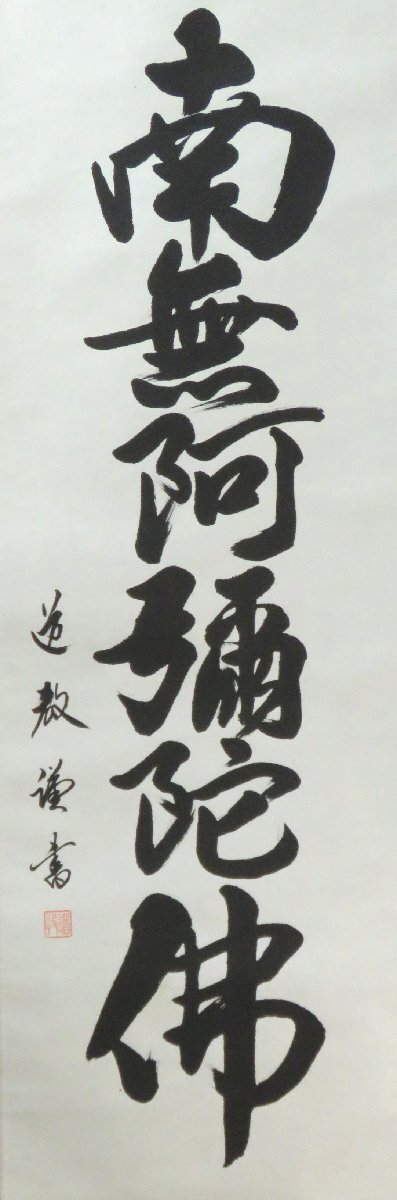 南無阿彌陀佛
道教謹書